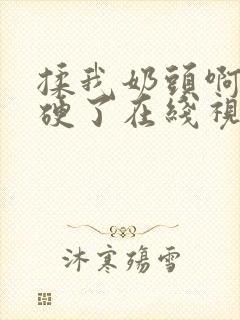 揉我奶頭啊
硬了在綫視
沐寒殤雪